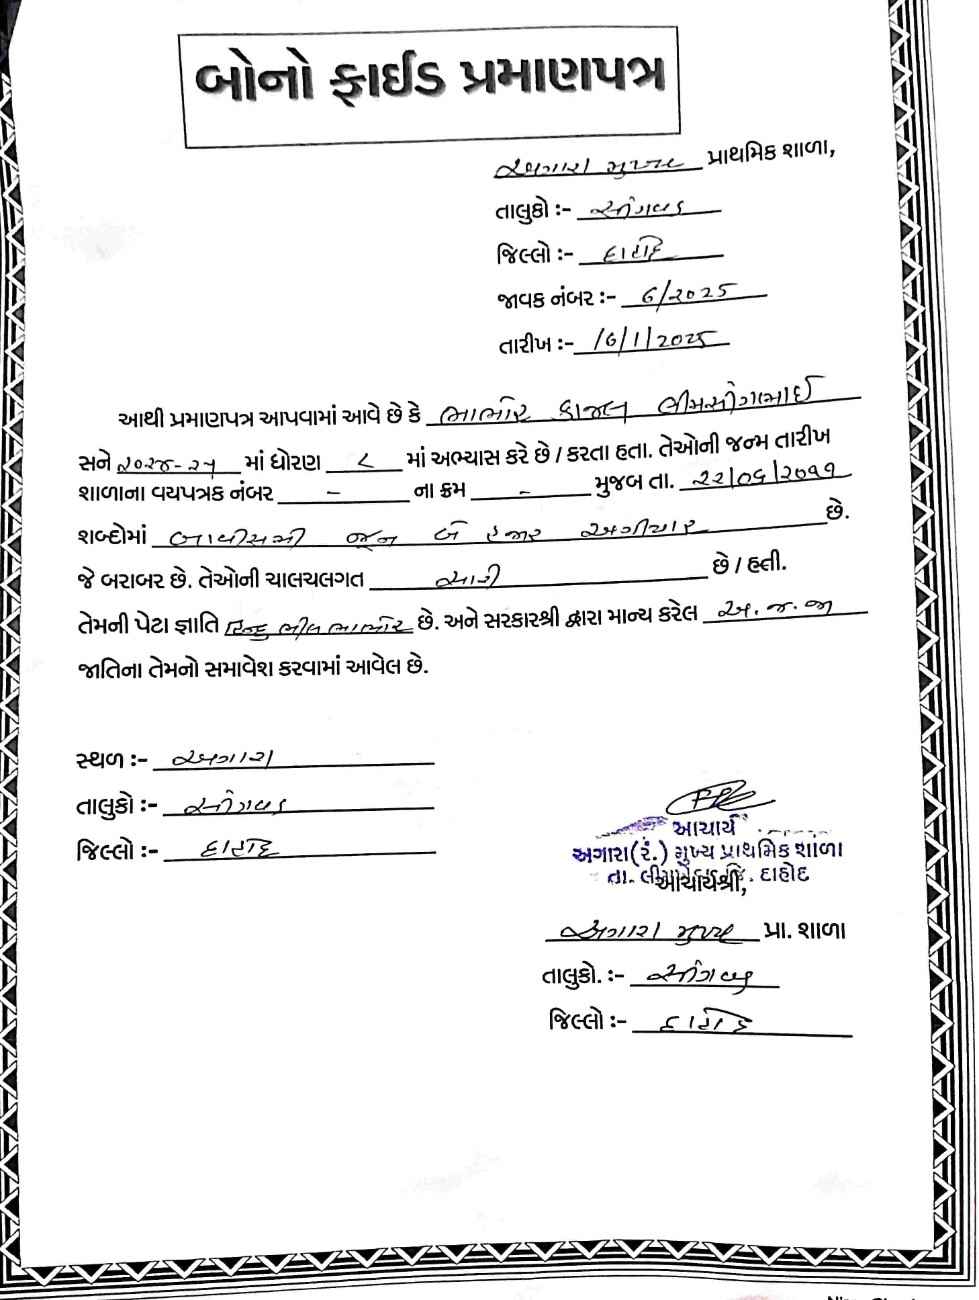 બોનો ફાઈડ પ્રમાણપત્ર
અગારા મુખ્ય પ્રાથમિક શાળા,
તાલુકો :- સીંગવડ
જિલ્લો :- દાહોદ
જાવક નંબર :- 6/૨૦૨5
તારીખ :- 16/1/૨૦૨5
આથી પ્રમાણપત્ર આપવામાં આવે છે કે ભાભોર કાજલ લીમસીંગભાઈ
સને ૨૦૨૪-૨૫ માં ધોરણ ૮ માં અભ્યાસ કરે છે / કરતા હતા. તેઓની જન્મ તારીખ
શાળાના વયપત્રક નંબર - ના ક્રમ - મુજબ તા. ૨૨/૦૬/૨૦૧૧
શબ્દોમાં બાવીસમી જૂન બે હજાર અગીયાર છે.
જે બરાબર છે. તેઓની ચાલચલગત સારી છે / હતી.
તેમની પેટા જ્ઞાતિ હિન્દુ ભીલ ભાભોર છે. અને સરકારશ્રી દ્વારા માન્ય કરેલ અ.જ.જા
જાતિના તેમનો સમાવેશ કરવામાં આવેલ છે.
સ્થળ :- અગારા
તાલુકો :- સીંગવડ
જિલ્લો :- દાહોદ
આચાર્ય
અગારા(રં.) મુખ્ય પ્રાથમિક શાળા
તા. જિ. દાહોદ
આચાર્યશ્રી,
અગારા મુખ્ય પ્રા. શાળા
તાલુકો. :- સીંગવડ
જિલ્લો :- દાહોદ